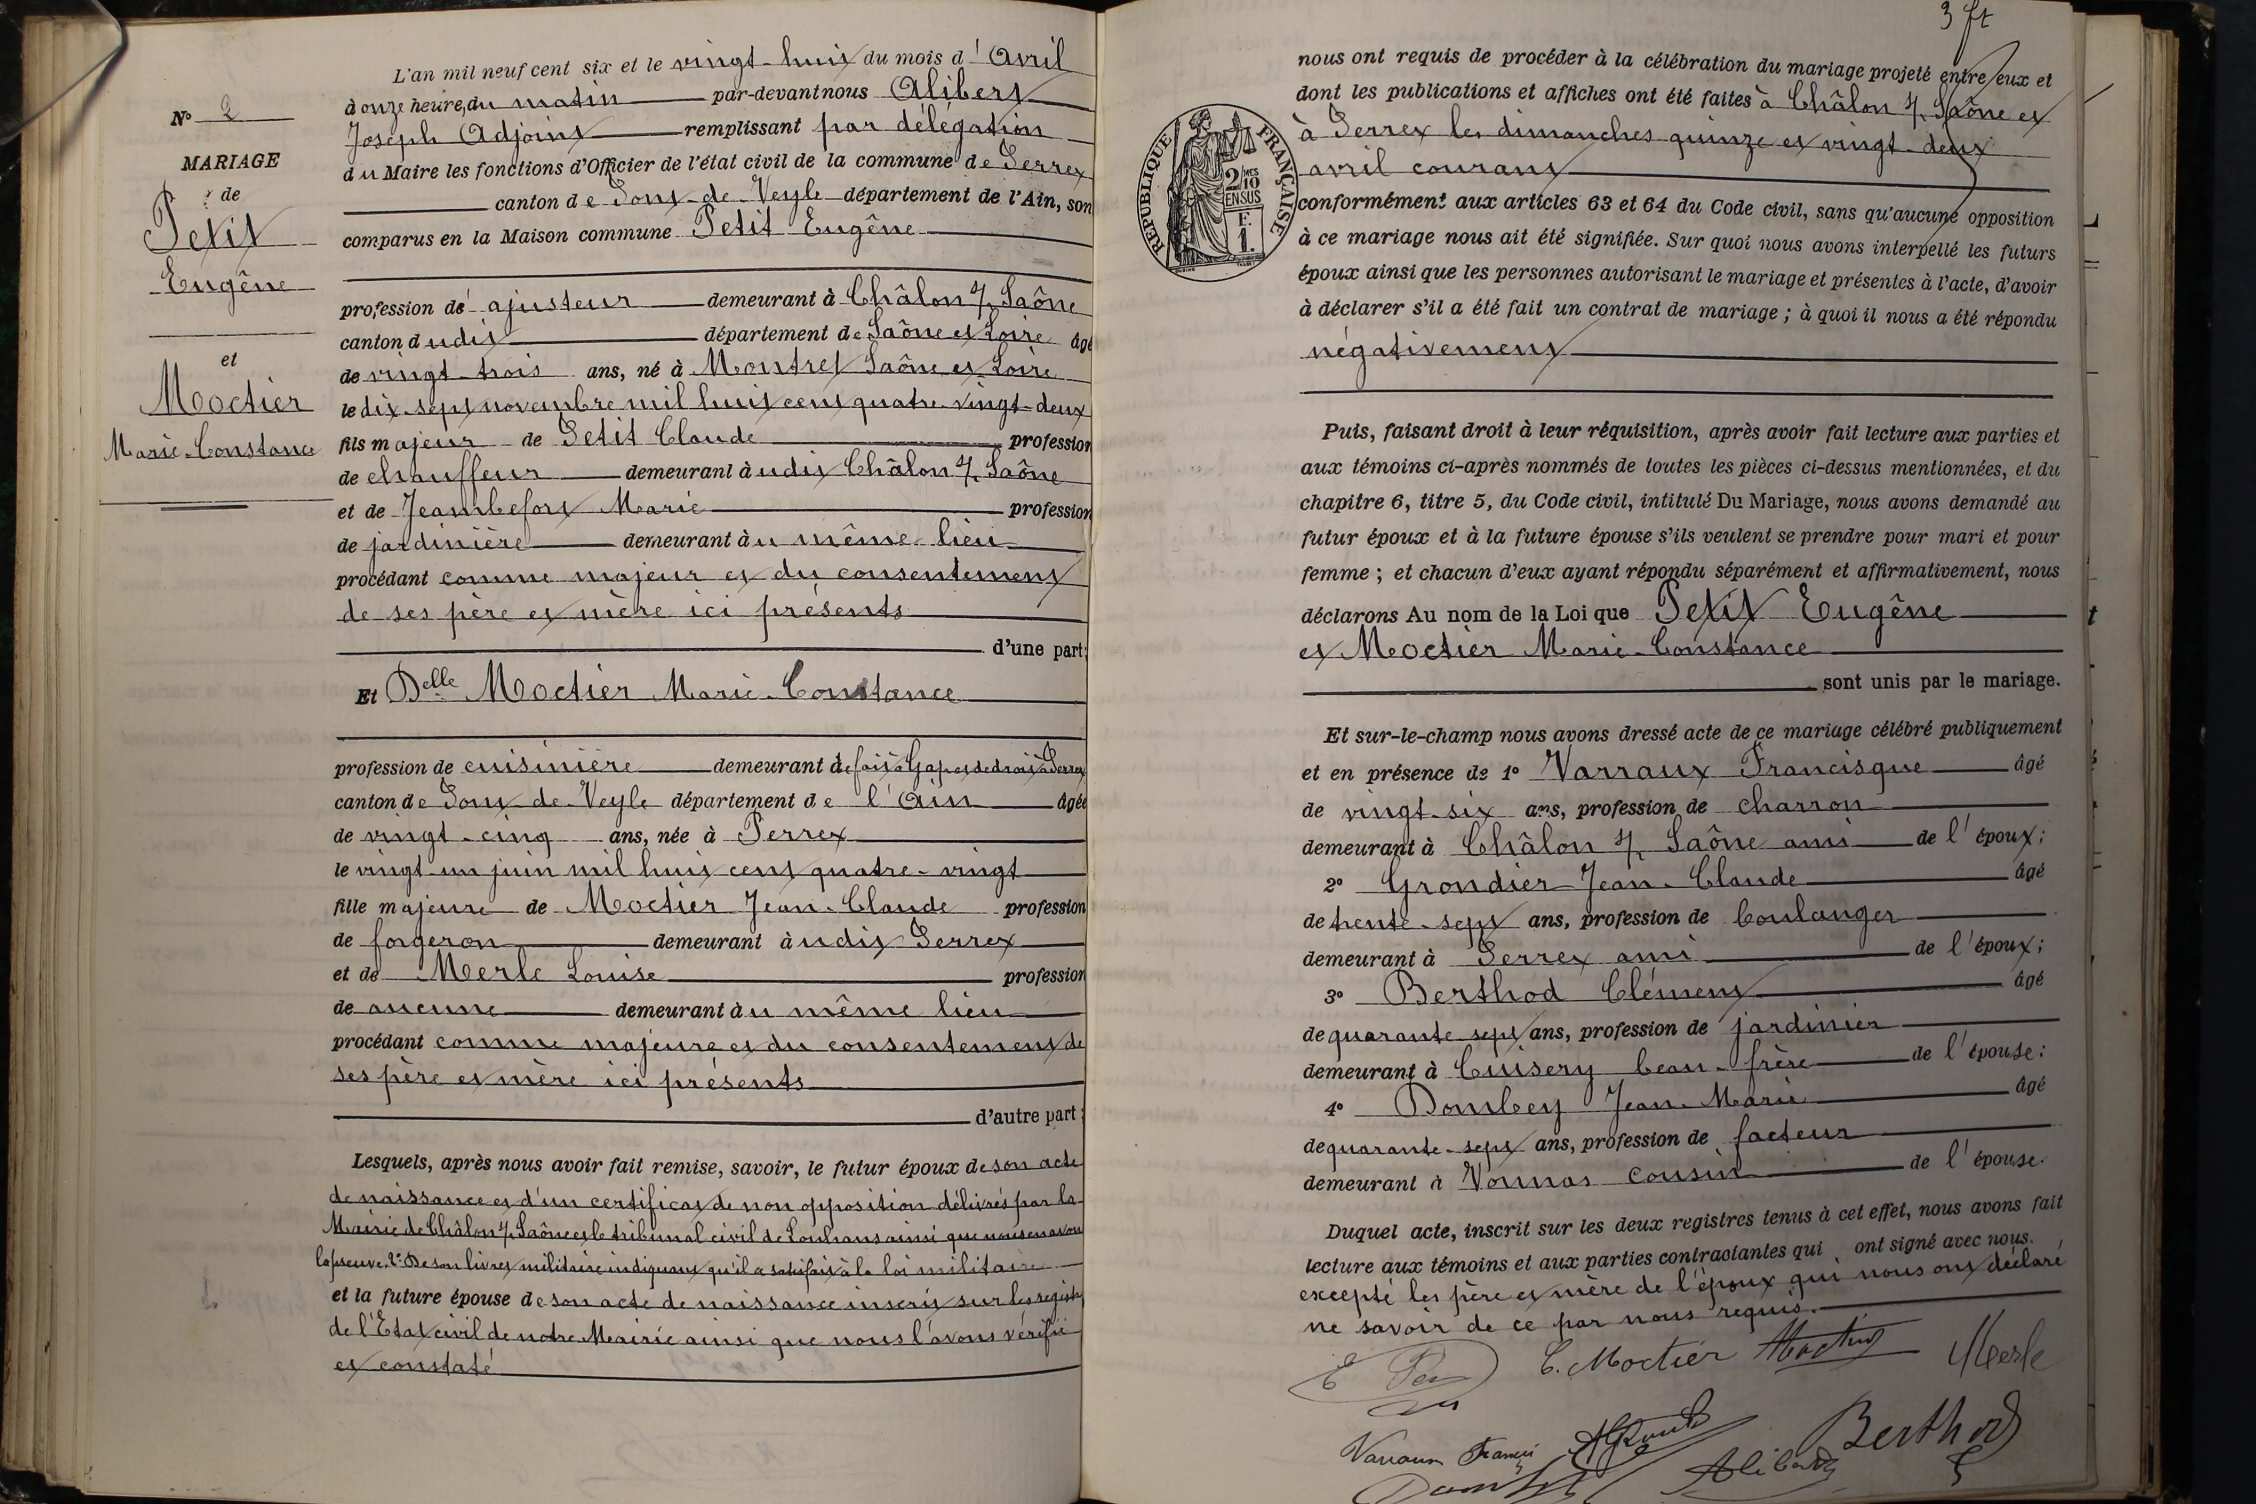 L'an mil neuf cent six et le vingt-huit du mois d'Avril
à onze heures du matin par-devant nous Alibert
Joseph Adjoint remplissant par délégation
du Maire les fonctions d'Officier de l'état civil de la commune de Perrex
canton de Pont-de-Veyle département de l'Ain, sont
comparus en la Maison commune Petit Eugêne
N° 2
MARIAGE
de
Petit
Eugêne
et
Moctier
Marie-Constance
profession de ajusteur demeurant à Châlon s/ Saône
canton dudit département de Saône et Loire âgé
de vingt-trois ans, né à Montret Saône et Loire
le dix-sept novembre mil huit cent quatre-vingt-deux
fils majeur de Petit Claude profession
de chauffeur demeurant àudit Châlon s/ Saône
et de Jeambefort Marie profession
de jardinière demeurant àu même lieu
procédant comme majeur et du consentement
de ses père et mère ici présents
d'une part;
Et Delle Moctier Marie-Constance
profession de cuisinière demeurant de fait à Gap et de droit à Perrex
canton de Pont-de-Veyle département de l'Ain âgée
de vingt-cinq ans, née à Perrex
le vingt-un juin mil huit cent quatre-vingt
fille majeure de Moctier Jean-Claude profession
de forgeron demeurant àudit Perrex
et de Merle Louise profession
de aucune demeurant àu même lieu
procédant comme majeure et du consentement de
ses père et mère ici présents
d'autre part;
Lesquels, après nous avoir fait remise, savoir, le futur époux de son acte
de naissance et d'un certificat de non opposition délivrés par la
Mairie de Châlon s/ Saône et le tribunal civil de Louhans ainsi que nous en avons
la preuve. 2° De son livret militaire indiquant qu'il a satisfait à la loi militaire
et la future épouse de son acte de naissance inscrit sur les registres
de l'Etat civil de notre Mairie ainsi que nous l'avons vérifié
et constaté
3 ft
nous ont requis de procéder à la célébration du mariage projeté entre eux et
dont les publications et affiches ont été faites à Châlon s/ Saône et
à Perrex les dimanches quinze et vingt-deux
avril courant
conformément aux articles 63 et 64 du Code civil, sans qu'aucune opposition
à ce mariage nous ait été signifiée. Sur quoi nous avons interpellé les futurs
époux ainsi que les personnes autorisant le mariage et présentes à l'acte, d'avoir
à déclarer s'il a été fait un contrat de mariage ; à quoi il nous a été répondu
négativement
RÉPUBLIQUE FRANÇAISE
2/10
MES
EN SUS
F.
1.
Puis, faisant droit à leur réquisition, après avoir fait lecture aux parties et
aux témoins ci-après nommés de toutes les pièces ci-dessus mentionnées, et du
chapitre 6, titre 5, du Code civil, intitulé Du Mariage, nous avons demandé au
futur époux et à la future épouse s'ils veulent se prendre pour mari et pour
femme ; et chacun d'eux ayant répondu séparément et affirmativement, nous
déclarons Au nom de la Loi que Petit Eugêne
et Moctier Marie-Constance
sont unis par le mariage.
Et sur-le-champ nous avons dressé acte de ce mariage célébré publiquement
et en présence de 1° Varraux Francisque âgé
de vingt-six ans, profession de charron
demeurant à Châlon s/ Saône ami de l'époux;
2° Grondier Jean-Claude âgé
de trente-sept ans, profession de boulanger
demeurant à Perrex ami de l'époux;
3° Berthod Clément âgé
de quarante-sept ans, profession de jardinier
demeurant à Cuisery beau-frère de l'épouse;
4° Dombey Jean-Marie âgé
de quarante-sept ans, profession de facteur
demeurant à Vonnas cousin de l'épouse.
Duquel acte, inscrit sur les deux registres tenus à cet effet, nous avons fait
lecture aux témoins et aux parties contractantes qui ont signé avec nous.
excepté les père et mère de l'époux qui nous ont déclaré
ne savoir de ce par nous requis.
C. Moctier Moctier Merle
Varraux Berthod
Alibert